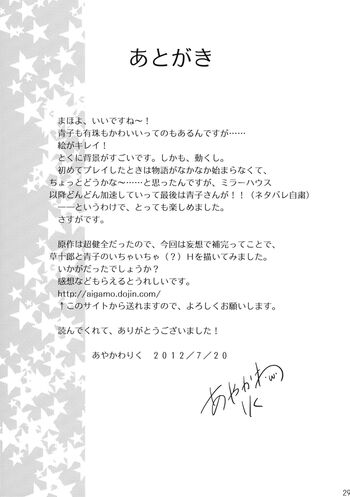 あとがき
まほよ、いいですね～！
青子も有珠もかわいいってのもあるんですが……
絵がキレイ！
とくに背景がすごいです。しかも、動くし。
初めてプレイしたときは物語がなかなか始まらなくて、
ちょっとどうかな～……と思ったんですが、ミラーハウス
以降どんどん加速していって最後は青子さんが！！（ネタバレ自粛）
――というわけで、とっても楽しめました。
さすがです。
原作は超健全だったので、今回は妄想で補完ってことで、
草十郎と青子のいちゃいちゃ（？）Ｈを描いてみました。
いかがだったでしょうか？
感想などもらえるとうれしいです。
http://aigamo.dojin.com/
↑このサイトから送れますので、よろしくお願いします。
読んでくれて、ありがとうございました！
あやかわりく　２０１２／７／２０
あやかわ
りく
29